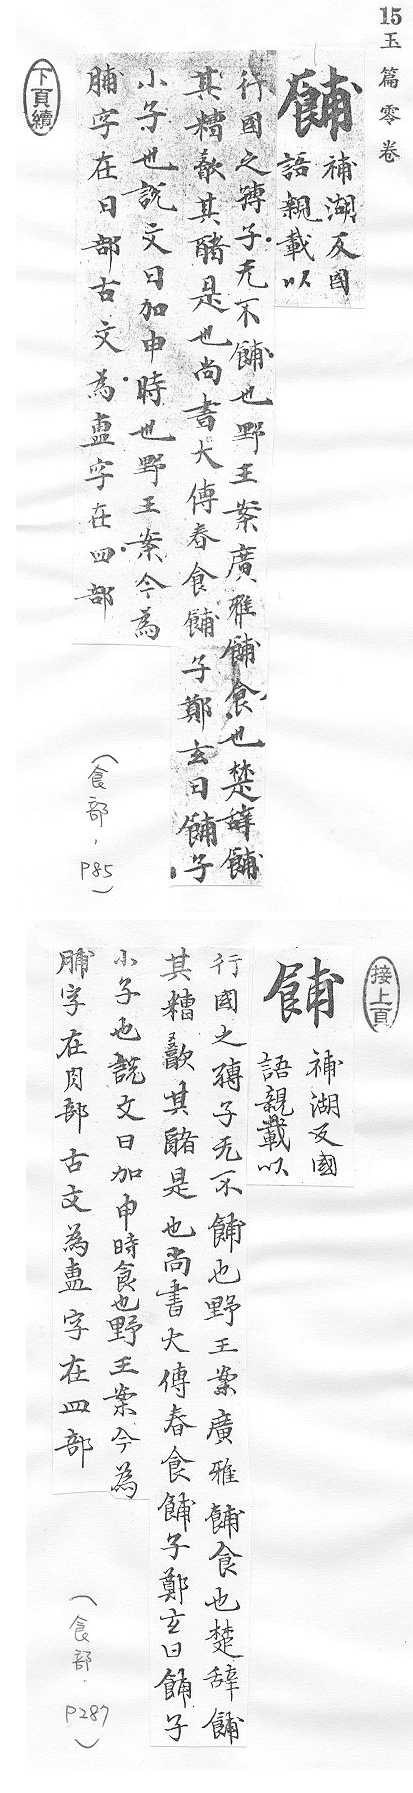 15玉篇零卷
餔
補湖反國
語親載以
行國之䊞子无不餔也野王案廣雅餔食也楚辭餔
其糟歠其醨是也尚書大傳春食餔子鄭玄曰餔子
小子也說文曰加申時也野王案今為
脯字在日部古文為䀯字在皿部
下頁續
(食部，P85)
接上頁
餔
補湖反國
語親載以
行國之糐子无不餔也野王案廣雅餔食也楚辭餔
其糟歠其醨是也尚書大傳春食餔子鄭玄曰餔子
小子也說文曰加申時食也野王案今為
脯字在肉部古文為䀯字在皿部
(食部．P287)